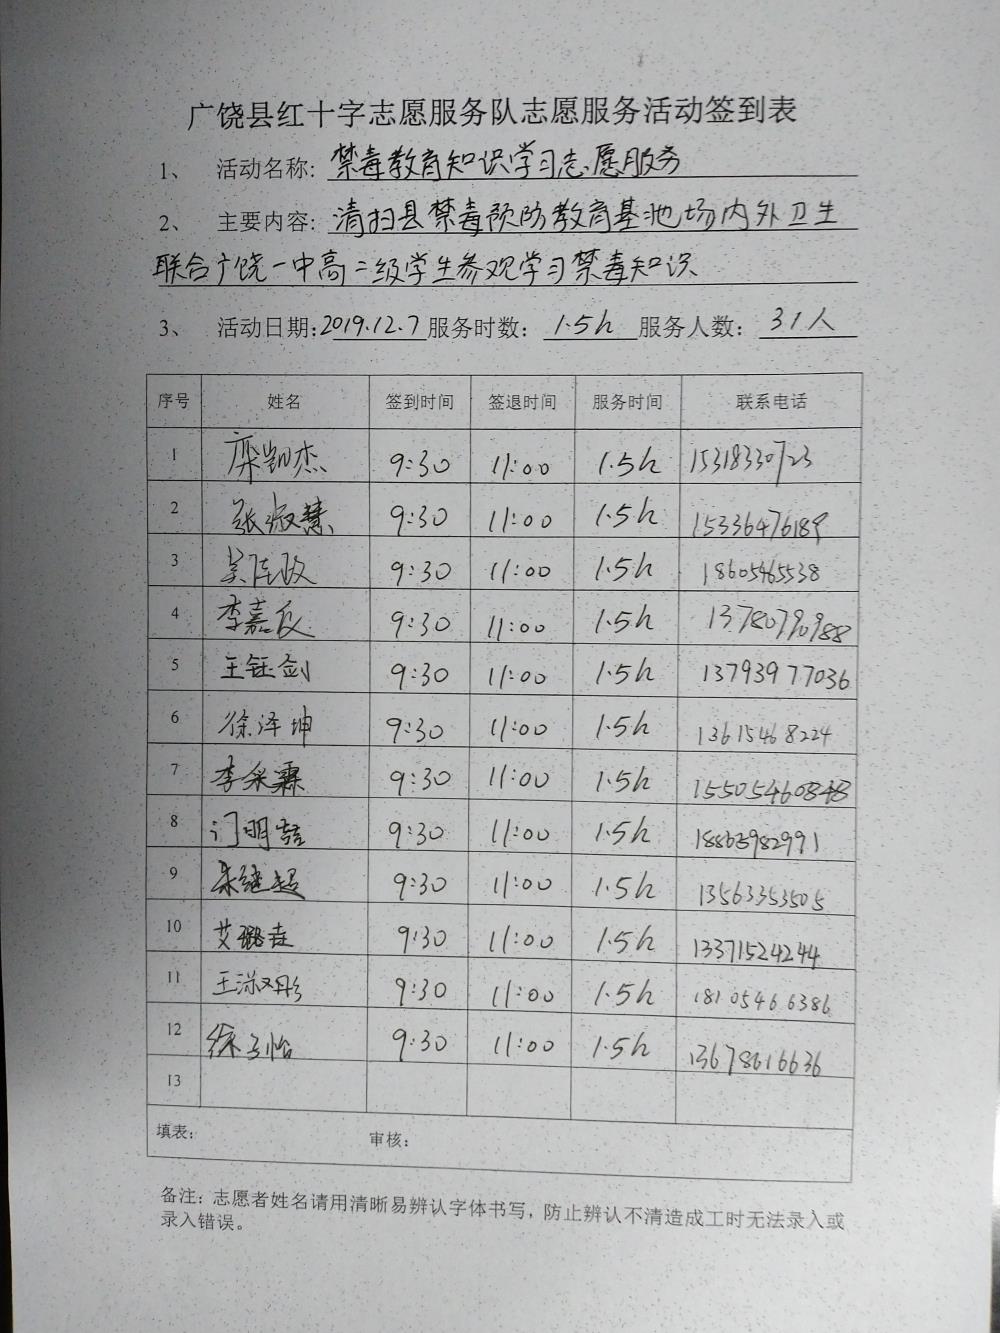 广饶县红十字志愿服务队志愿服务活动签到表
1、 活动名称: 禁毒教育知识学习志愿服务
2、 主要内容: 清扫县禁毒预防教育基地场内外卫生
联合广饶一中高二级学生参观学习禁毒知识
3、 活动日期: 2019.12.7 服务时数: 1.5h 服务人数: 31人
序号 姓名 签到时间 签退时间 服务时间 联系电话
1 9:30 11:00 1.5h 15318330723
2 张淑慧 9:30 11:00 1.5h 15336476189
3 9:30 11:00 1.5h 18605465538
4 9:30 11:00 1.5h 13780790988
5 王钰剑 9:30 11:00 1.5h 13793977036
6 徐泽坤 9:30 11:00 1.5h 13615468224
7 李采霖 9:30 11:00 1.5h 15505460848
8 门明喆 9:30 11:00 1.5h 18863982991
9 朱继超 9:30 11:00 1.5h 13563353505
10 艾璐垚 9:30 11:00 1.5h 13371524244
11 9:30 11:00 1.5h 18105466386
12 徐子怡 9:30 11:00 1.5h 13678616636
13
填表: 审核:
备注: 志愿者姓名请用清晰易辨认字体书写, 防止辨认不清造成工时无法录入或
录入错误。